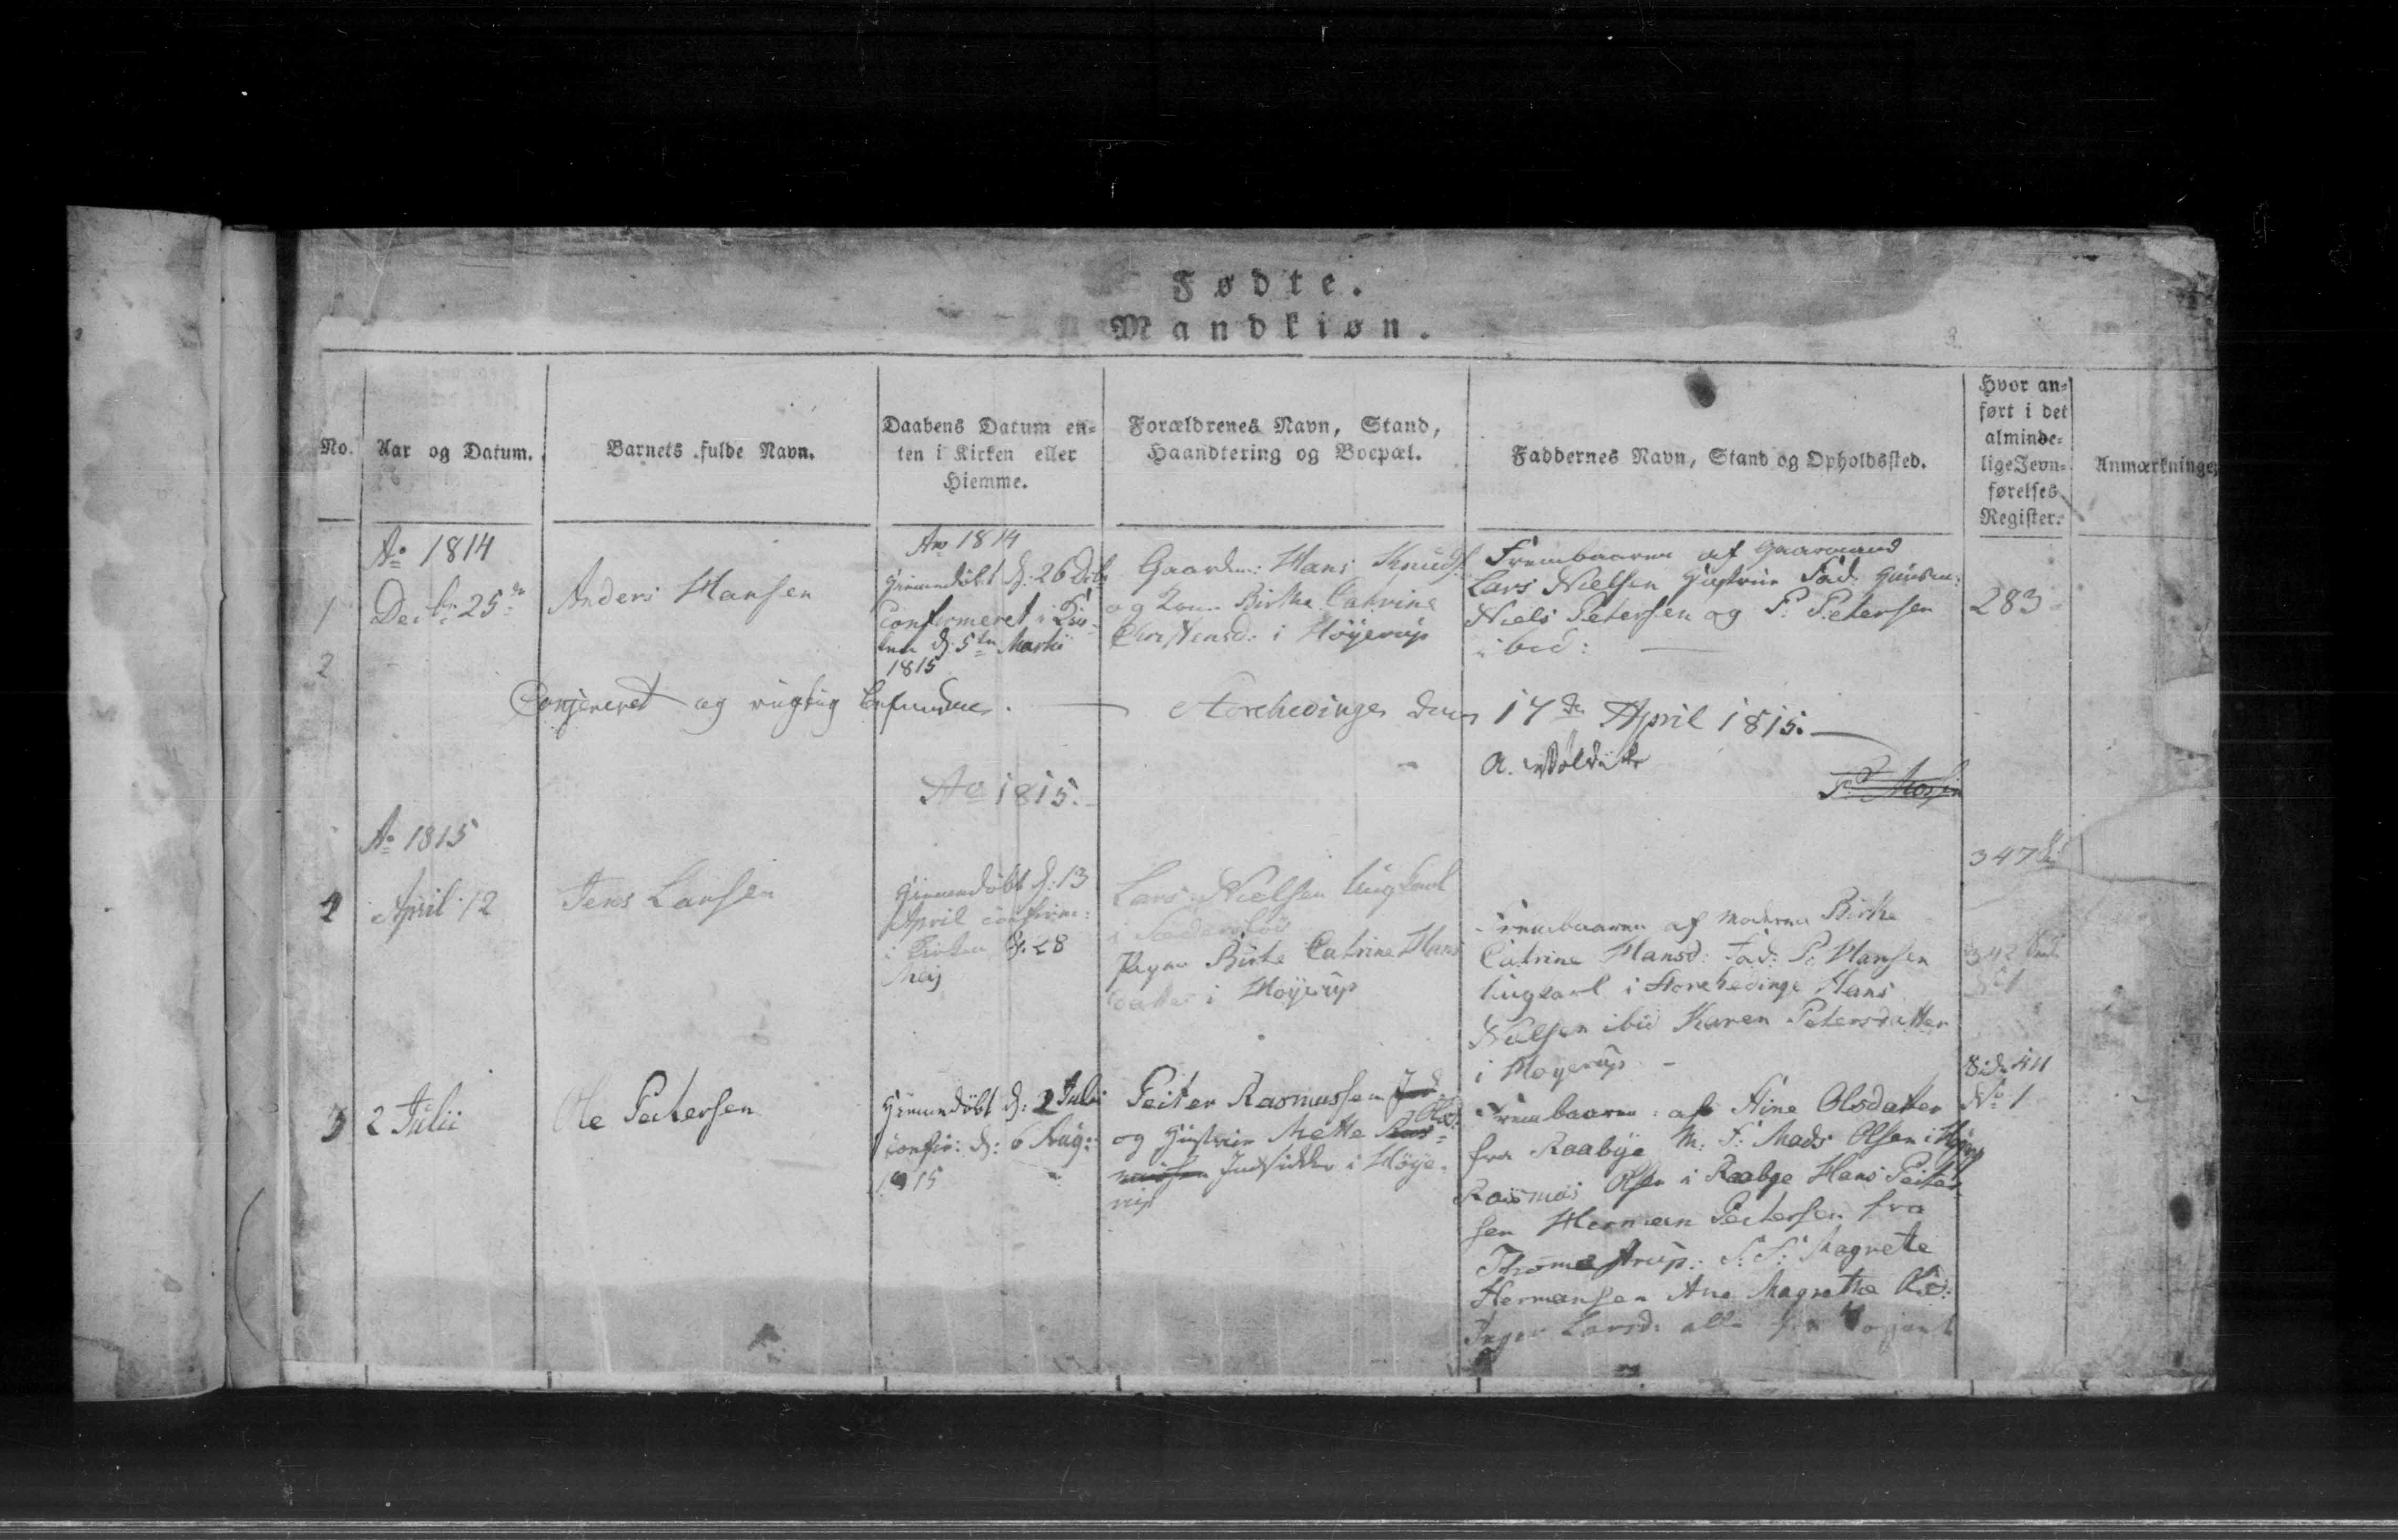 Fødte.
Mandkiøn.
No.
Aar og Datum.
Barnets fulde Navn.
Daabens Datum en-
ten i Kirken eller
Hiemme.
Forældrenes Navn, Stand,
Haandtering og Boepæl.
Faddernes Navn, Stand og Opholdssted.
Hvor an-
ført i det
alminde-
lige Jevn-
førelses
Register.
Anmærkninger
Ao 1814
1
Decbr: 25de
Anders Hansen
Ao 1814
Hiemmedøbt d: 26 Decbr
Confirmeret i Kir-
ken d: 5te Martii
1815
Gaardm: Hans Knuds:
og Kone Birthe Catrine
Christensd: i Höyerup
Frembaaren af Gaarmand
Lars Nielsen Hustrue Fad: Huusm:
Niels Petersen og P: Petersen
ibid:
283
2
Conferered og rigtig befunden. Storehedinge den 17de April 1815.
A. Woldike
Ao 1815.
Ao 1815
2
April 12
Jens Larsen
Hiemmedøbt d: 13
April confirm:
i Kirken d: 28
Maj
Lars Nielsen Ungkarl
i
Pigen Birte Catrine Hans
datter i Höyerup
Frembaaren af Moderen Birthe
Catrine Hansd: Fad: P: Hansen
Ungkarl i Storehedinge Hans
Nielsen ibid Karen Petersdatter
i Höyerup -
347
342
3
2 Julii
Ole Peitersen
Hiemmedöbt d: 2 Julii
confir: d: 6 Aug:
1815
Peiter Rasmussen
og Hustrue Mette Olsd:
Indsidder i Höye-
rup
Frembaaren: af Stine Olsdatter
fra Raabye M: F: Mads Olsen i Höyrup
Rasmus Olsen i Raabye Hans Peiter
sen Herman Peitersen fra
Thomestrup: Magrete
Hermansen Ane Magrethe
Inger Larsd: alle
Side 511
No 1